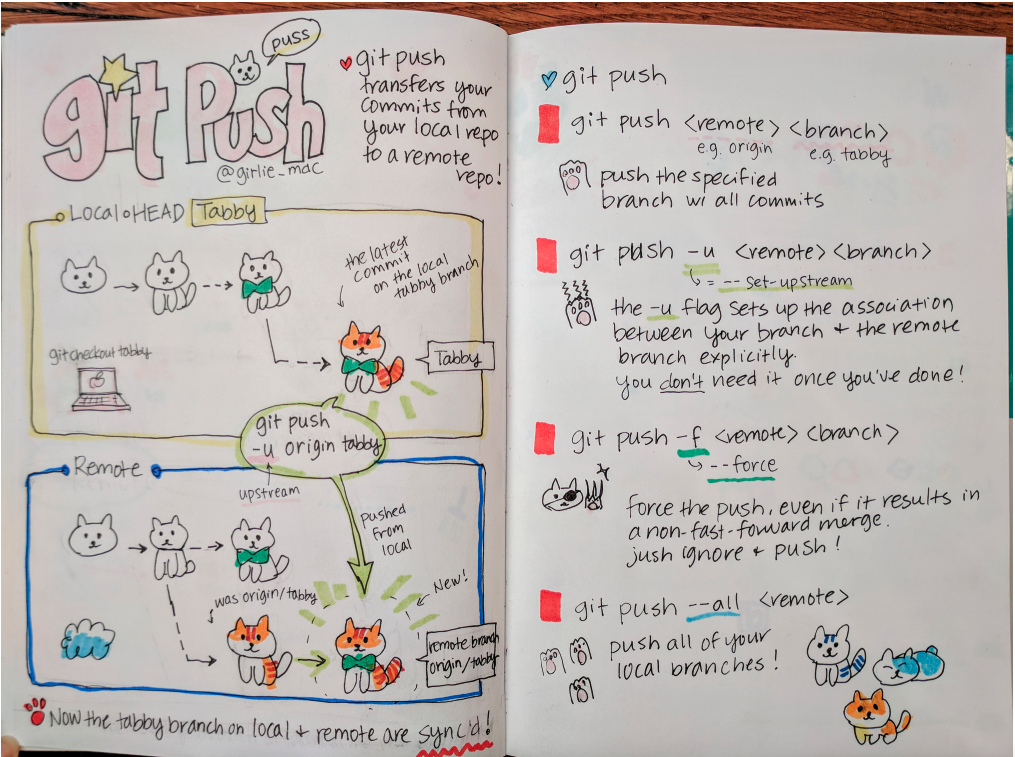 puss
git Push
@girlie_mac
git push
transfers your
commits from
your local repo
to a remote
repo!
Local HEAD Tabby
the latest
commit
on the local
tabby branch
git checkout tabby
Tabby
git push
-u origin tabby
upstream
Remote
pushed
from
local
was origin/tabby
New!
remote branch
origin/tabby
Now the tabby branch on local + remote are sync'd!
git push
git push <remote> <branch>
e.g. origin e.g. tabby
push the specified
branch w/ all commits
git push -u <remote> <branch>
= --set-upstream
the -u flag sets up the association
between your branch + the remote
branch explicitly.
you don't need it once you've done!
git push -f <remote> <branch>
--force
force the push, even if it results in
a non-fast-forward merge.
jush ignore + push!
git push --all <remote>
push all of your
local branches!